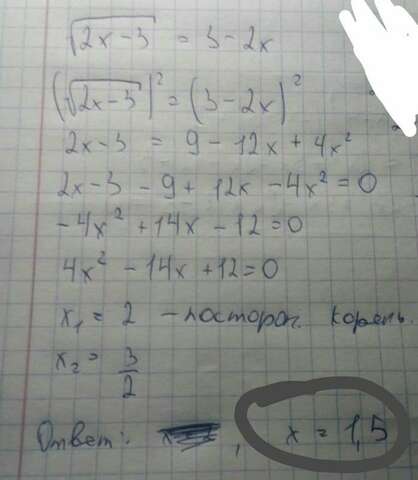 √(2x-3) = 3-2x
(√(2x-3))² = (3-2x)²
2x-3 = 9-12x+4x²
2x-3-9+12x-4x²=0
-4x²+14x-12=0
4x²-14x+12=0
x₁ = 2 - посторон. корень.
x₂ = 3/2
Ответ: , x = 1,5